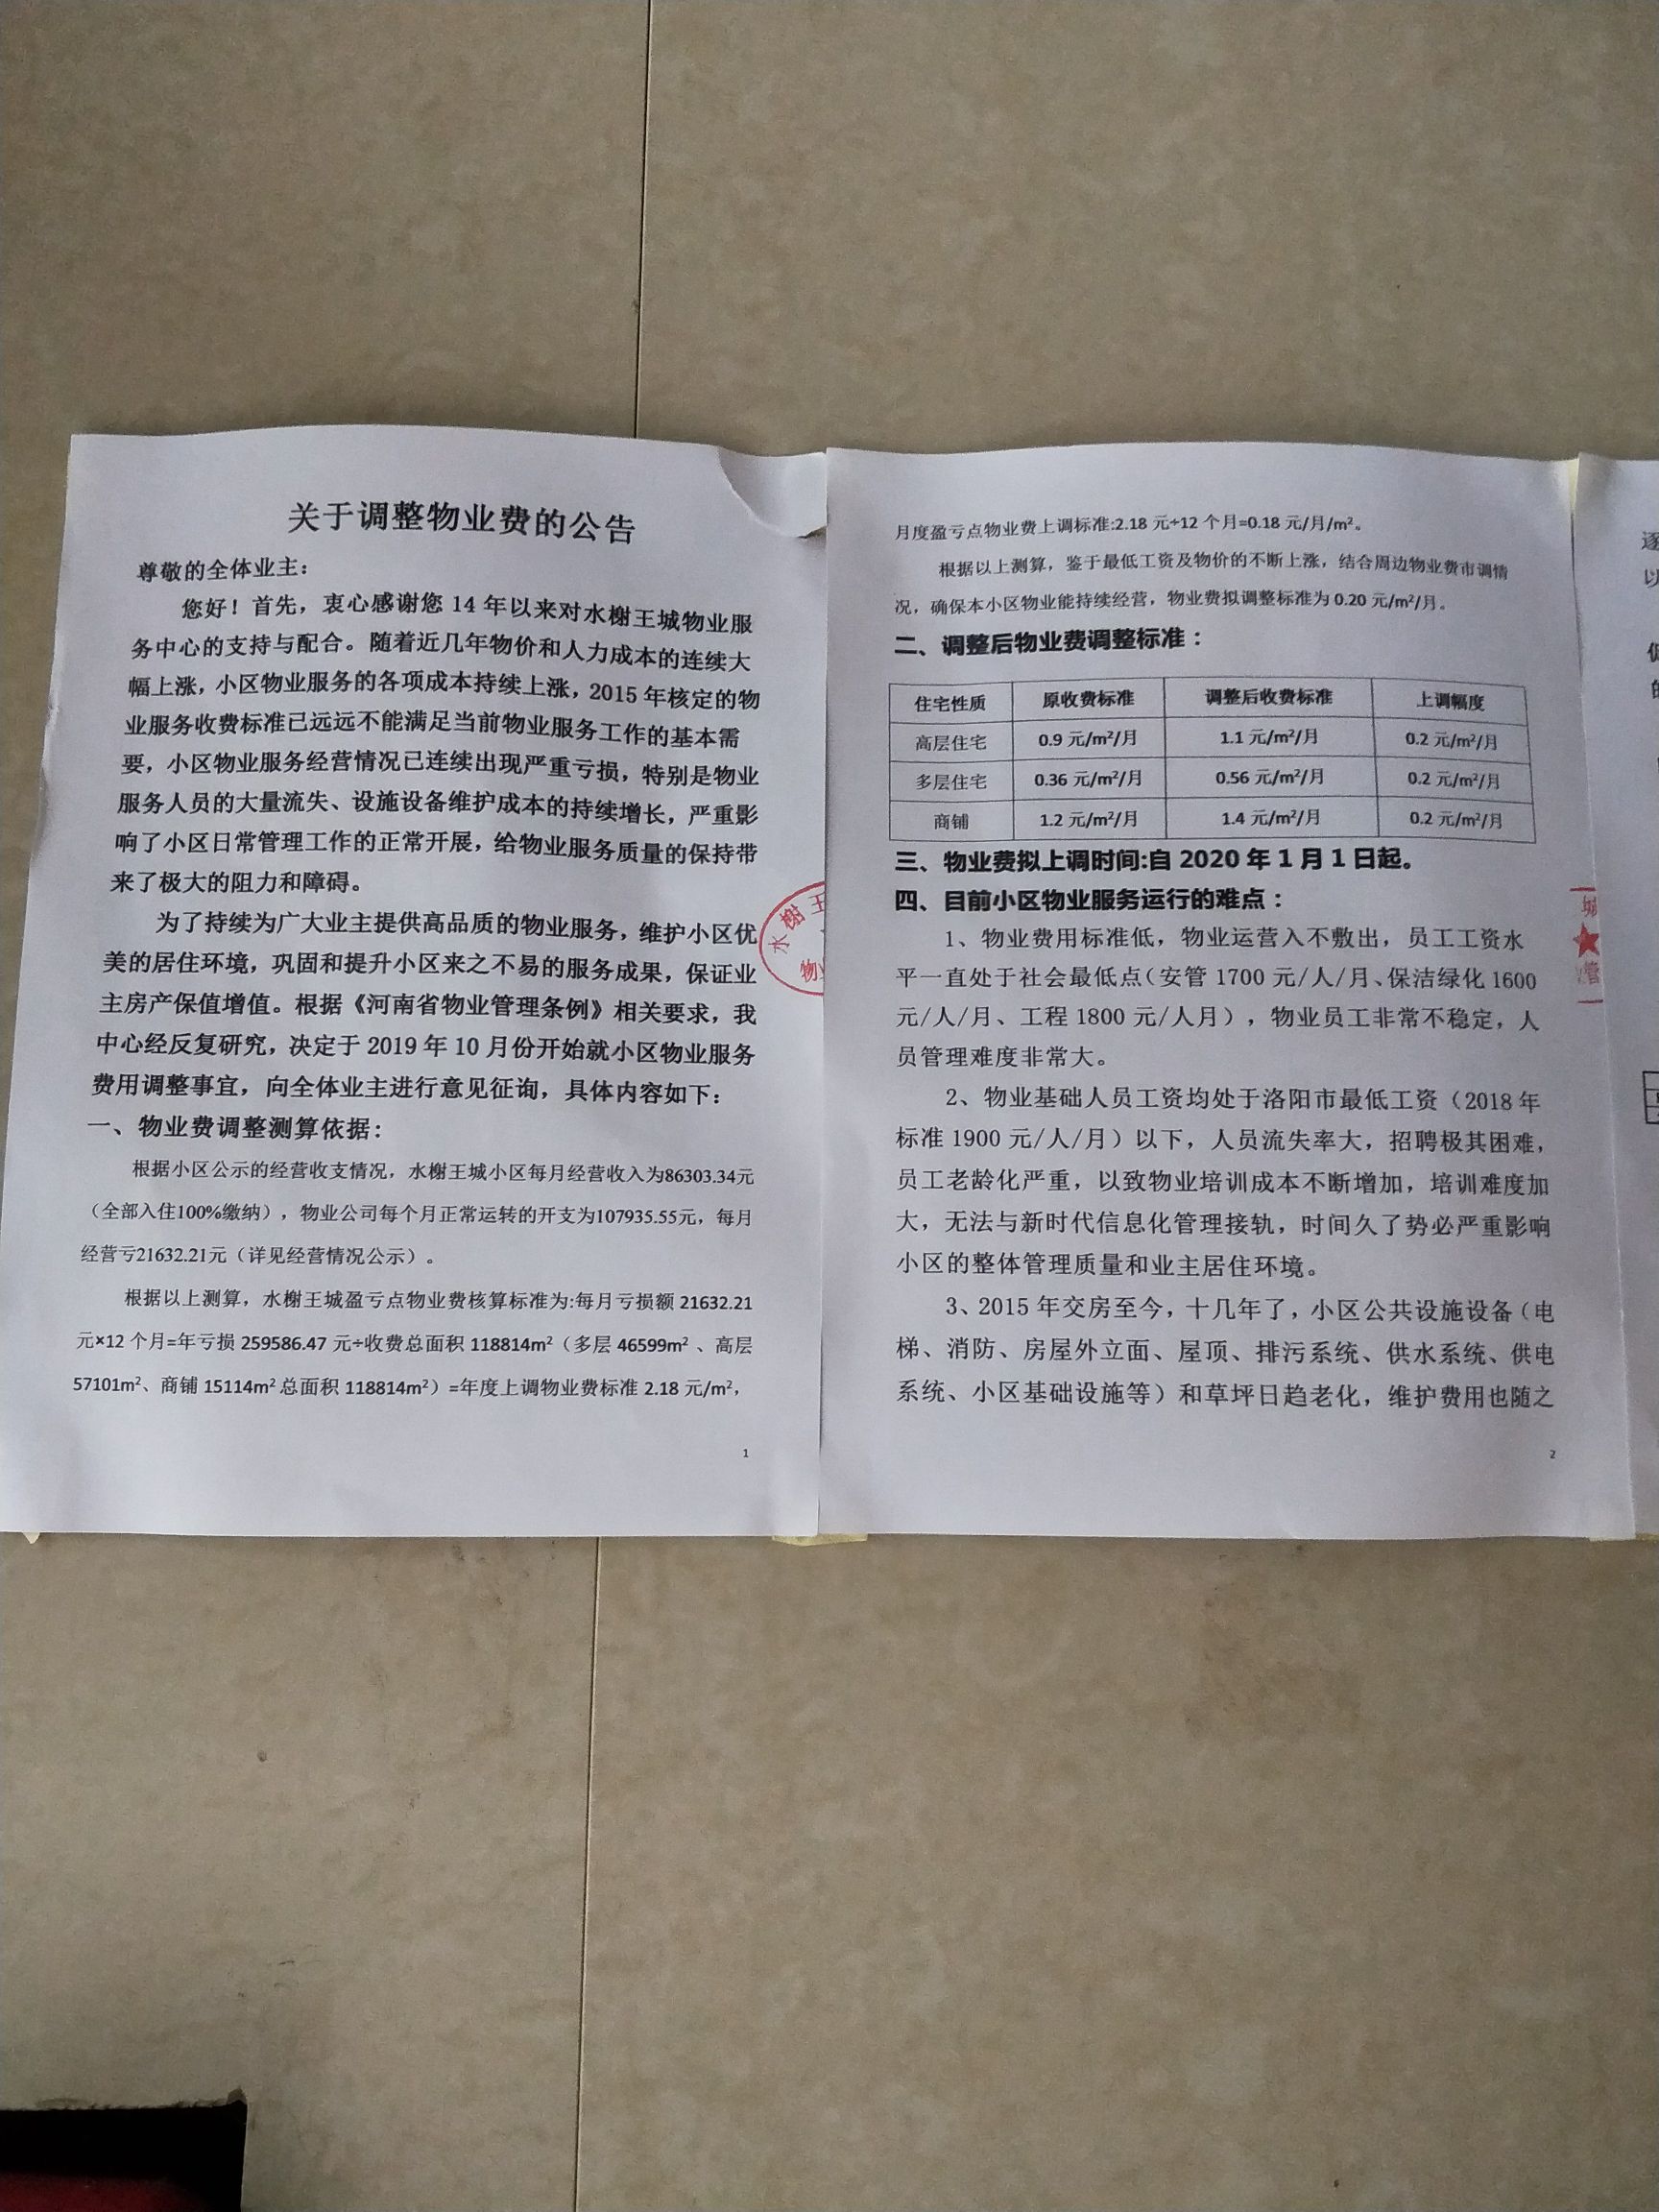 关于调整物业费的公告
尊敬的全体业主：
您好！首先，衷心感谢您 14 年以来对水榭王城物业服
务中心的支持与配合。随着近几年物价和人力成本的连续大
幅上涨，小区物业服务的各项成本持续上涨，2015 年核定的物
业服务收费标准已远远不能满足当前物业服务工作的基本需
要，小区物业服务经营情况已连续出现严重亏损，特别是物业
服务人员的大量流失、设施设备维护成本的持续增长，严重影
响了小区日常管理工作的正常开展，给物业服务质量的保持带
来了极大的阻力和障碍。
为了持续为广大业主提供高品质的物业服务，维护小区优
美的居住环境，巩固和提升小区来之不易的服务成果，保证业
主房产保值增值。根据《河南省物业管理条例》相关要求，我
中心经反复研究，决定于 2019 年 10 月份开始就小区物业服务
费用调整事宜，向全体业主进行意见征询，具体内容如下：
一、物业费调整测算依据：
根据小区公示的经营收支情况，水榭王城小区每月经营收入为86303.34元
（全部入住100%缴纳），物业公司每个月正常运转的开支为107935.55元，每月
经营亏21632.21元（详见经营情况公示）。
根据以上测算，水榭王城盈亏点物业费核算标准为:每月亏损额 21632.21
元×12 个月=年亏损 259586.47 元÷收费总面积 118814m²（多层 46599m² 、高层
57101m²、商铺 15114m² 总面积 118814m²）=年度上调物业费标准 2.18 元/m²，
1
水榭王
物业
月度盈亏点物业费上调标准:2.18 元÷12 个月=0.18 元/月/m²。
根据以上测算，鉴于最低工资及物价的不断上涨，结合周边物业费市调情
况，确保本小区物业能持续经营，物业费拟调整标准为 0.20 元/m²/月。
二、调整后物业费调整标准：
住宅性质 原收费标准 调整后收费标准 上调幅度
高层住宅 0.9 元/m²/月 1.1 元/m²/月 0.2 元/m²/月
多层住宅 0.36 元/m²/月 0.56 元/m²/月 0.2 元/m²/月
商铺 1.2 元/m²/月 1.4 元/m²/月 0.2 元/m²/月
三、物业费拟上调时间:自 2020 年 1 月 1 日起。
四、目前小区物业服务运行的难点：
1、物业费用标准低，物业运营入不敷出，员工工资水
平一直处于社会最低点（安管 1700 元/人/月、保洁绿化 1600
元/人/月、工程 1800 元/人月），物业员工非常不稳定，人
员管理难度非常大。
2、物业基础人员工资均处于洛阳市最低工资（2018 年
标准 1900 元/人/月）以下，人员流失率大，招聘极其困难，
员工老龄化严重，以致物业培训成本不断增加，培训难度加
大，无法与新时代信息化管理接轨，时间久了势必严重影响
小区的整体管理质量和业主居住环境。
3、2015 年交房至今，十几年了，小区公共设施设备（电
梯、消防、房屋外立面、屋顶、排污系统、供水系统、供电
系统、小区基础设施等）和草坪日趋老化，维护费用也随之
2
城
管
逐
以